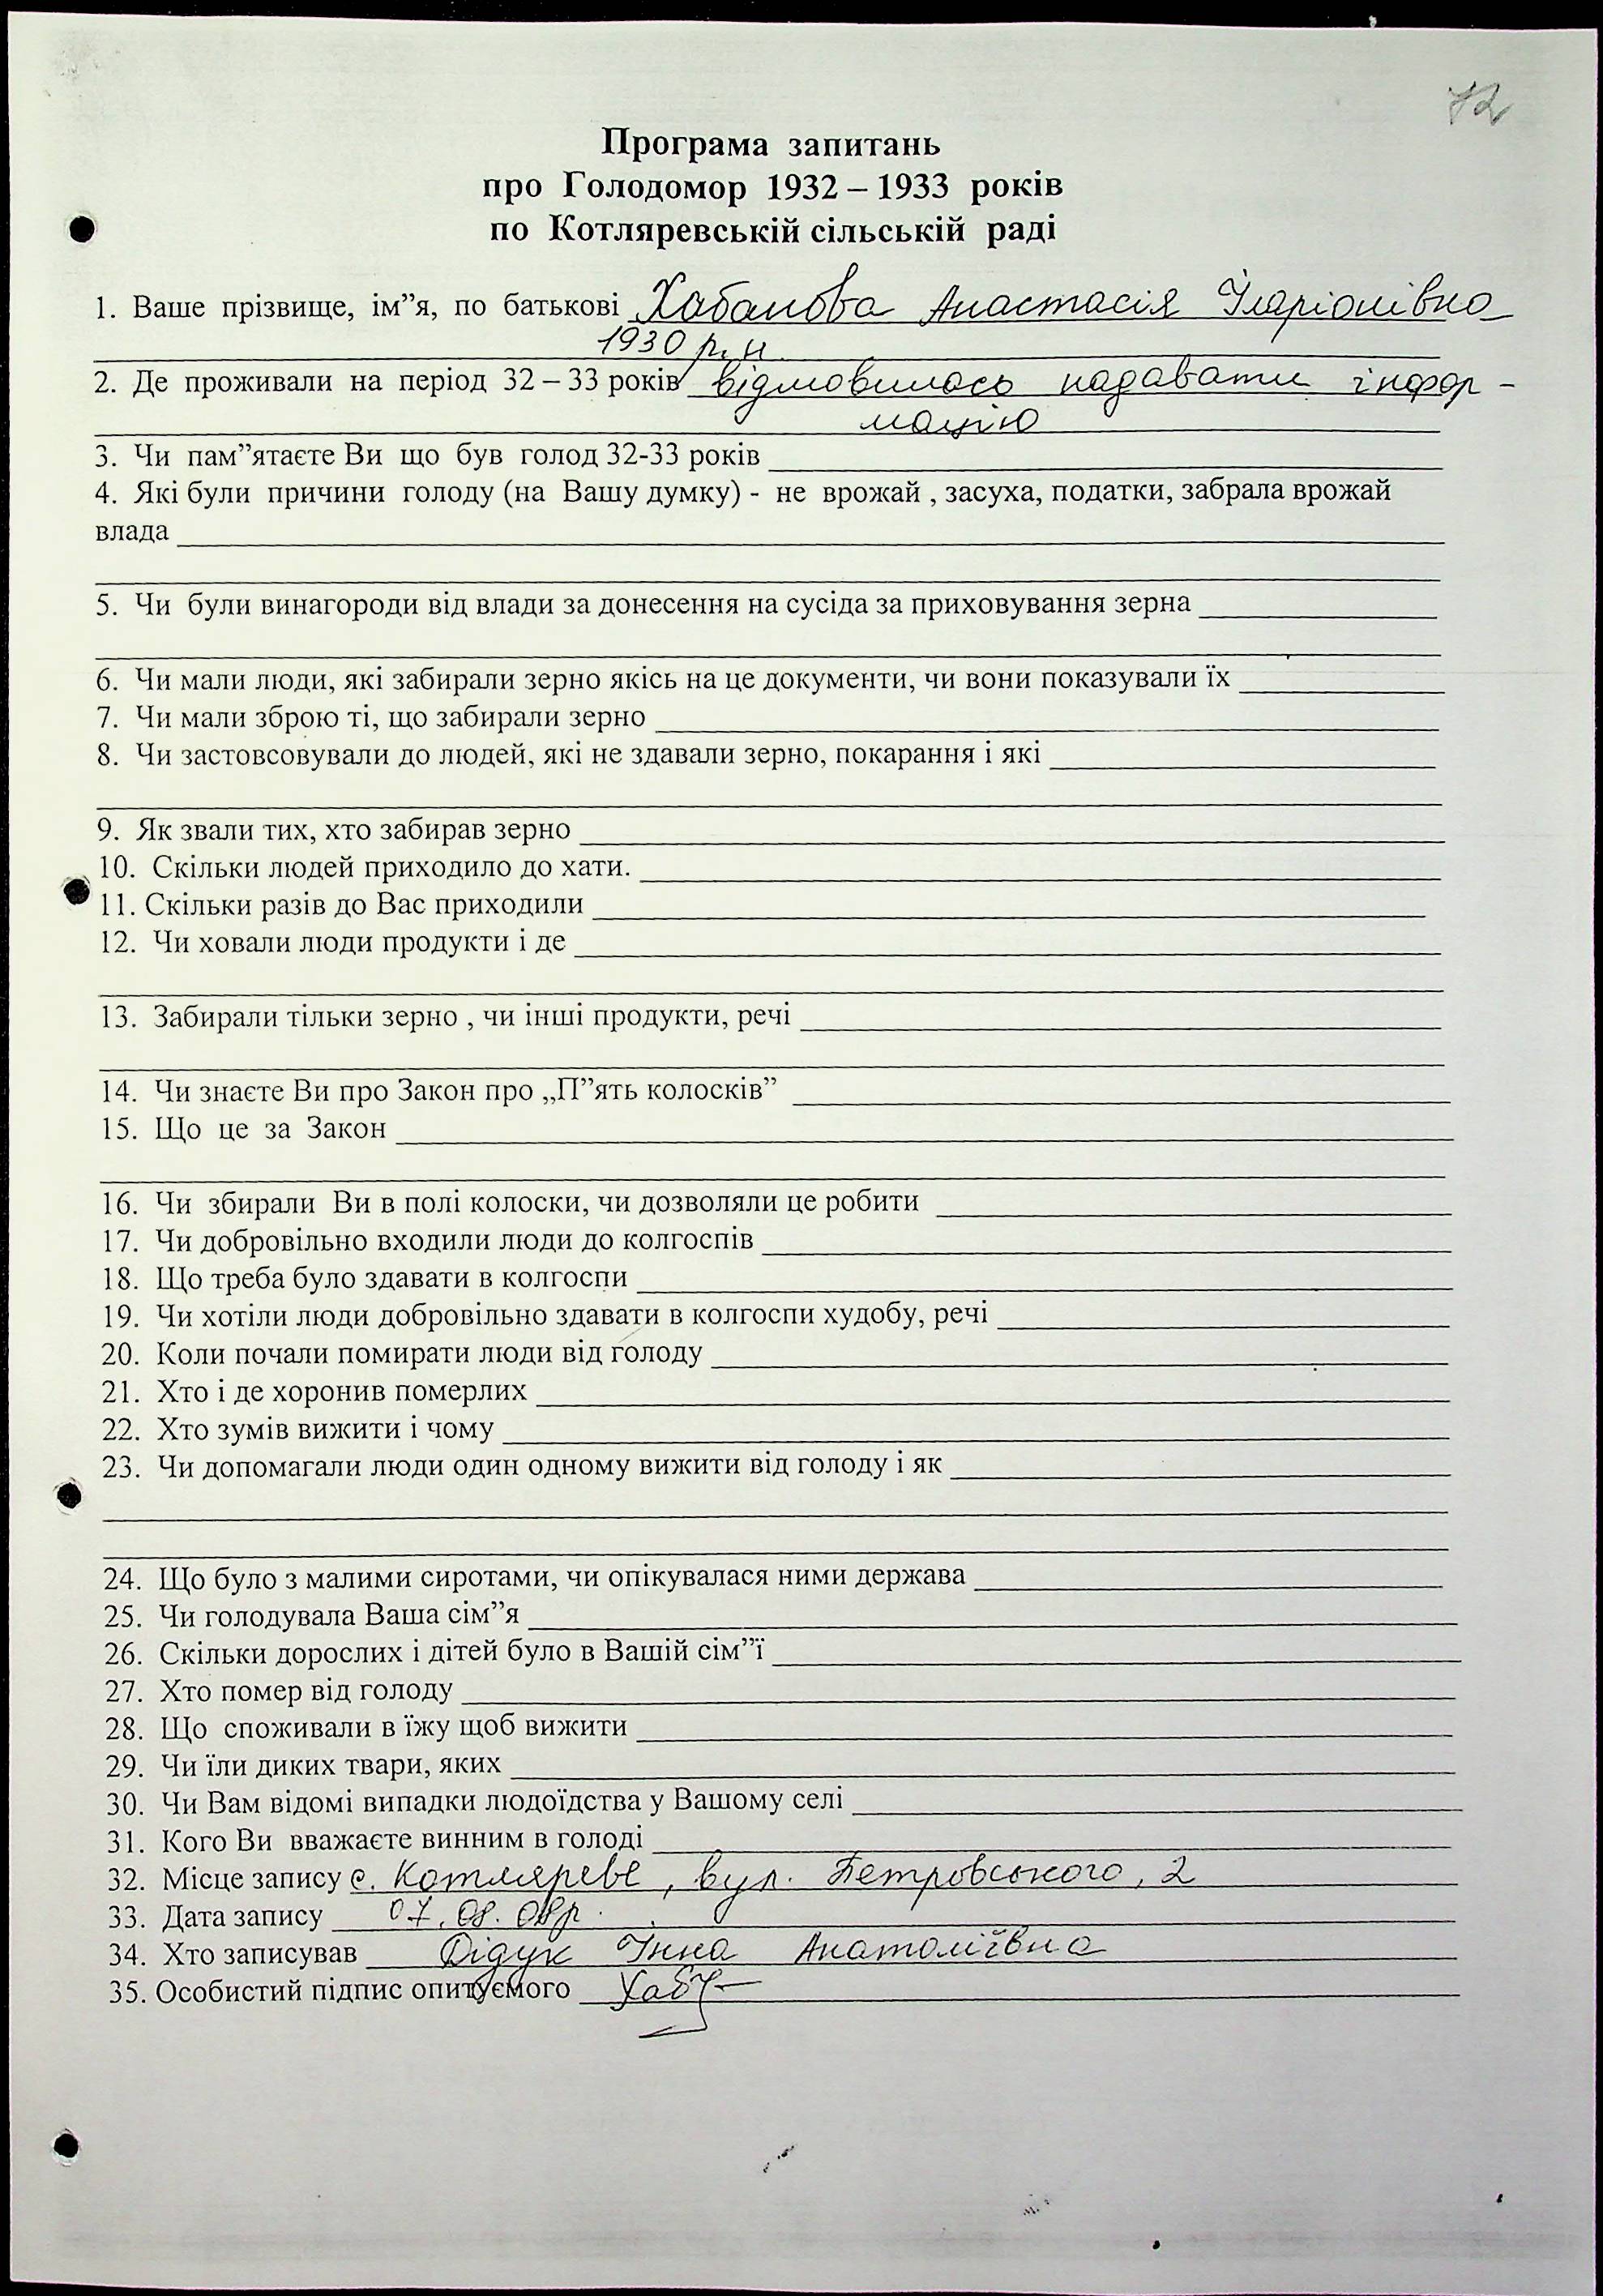 72
Програма запитань
про Голодомор 1932 – 1933 років
по Котляревській сільській раді
1. Ваше прізвище, ім”я, по батькові Хабанова Анастасія Іларіонівна
1930 р.н.
2. Де проживали на період 32 – 33 років відмовилась надавати інфор-
мацію
3. Чи пам”ятаєте Ви що був голод 32-33 років
4. Які були причини голоду (на Вашу думку) - не врожай , засуха, податки, забрала врожай
влада
5. Чи були винагороди від влади за донесення на сусіда за приховування зерна
6. Чи мали люди, які забирали зерно якісь на це документи, чи вони показували їх
7. Чи мали зброю ті, що забирали зерно
8. Чи застовсовували до людей, які не здавали зерно, покарання і які
9. Як звали тих, хто забирав зерно
10. Скільки людей приходило до хати.
11. Скільки разів до Вас приходили
12. Чи ховали люди продукти і де
13. Забирали тільки зерно , чи інші продукти, речі
14. Чи знаєте Ви про Закон про „П”ять колосків”
15. Що це за Закон
16. Чи збирали Ви в полі колоски, чи дозволяли це робити
17. Чи добровільно входили люди до колгоспів
18. Що треба було здавати в колгоспи
19. Чи хотіли люди добровільно здавати в колгоспи худобу, речі
20. Коли почали помирати люди від голоду
21. Хто і де хоронив померлих
22. Хто зумів вижити і чому
23. Чи допомагали люди один одному вижити від голоду і як
24. Що було з малими сиротами, чи опікувалася ними держава
25. Чи голодувала Ваша сім”я
26. Скільки дорослих і дітей було в Вашій сім”ї
27. Хто помер від голоду
28. Що споживали в їжу щоб вижити
29. Чи їли диких твари, яких
30. Чи Вам відомі випадки людоїдства у Вашому селі
31. Кого Ви вважаєте винним в голоді
32. Місце запису с. Котляреве, вул. Петровського, 2
33. Дата запису 07.08.08р.
34. Хто записував Дідук Інна Анатоліївна
35. Особистий підпис опитуємого